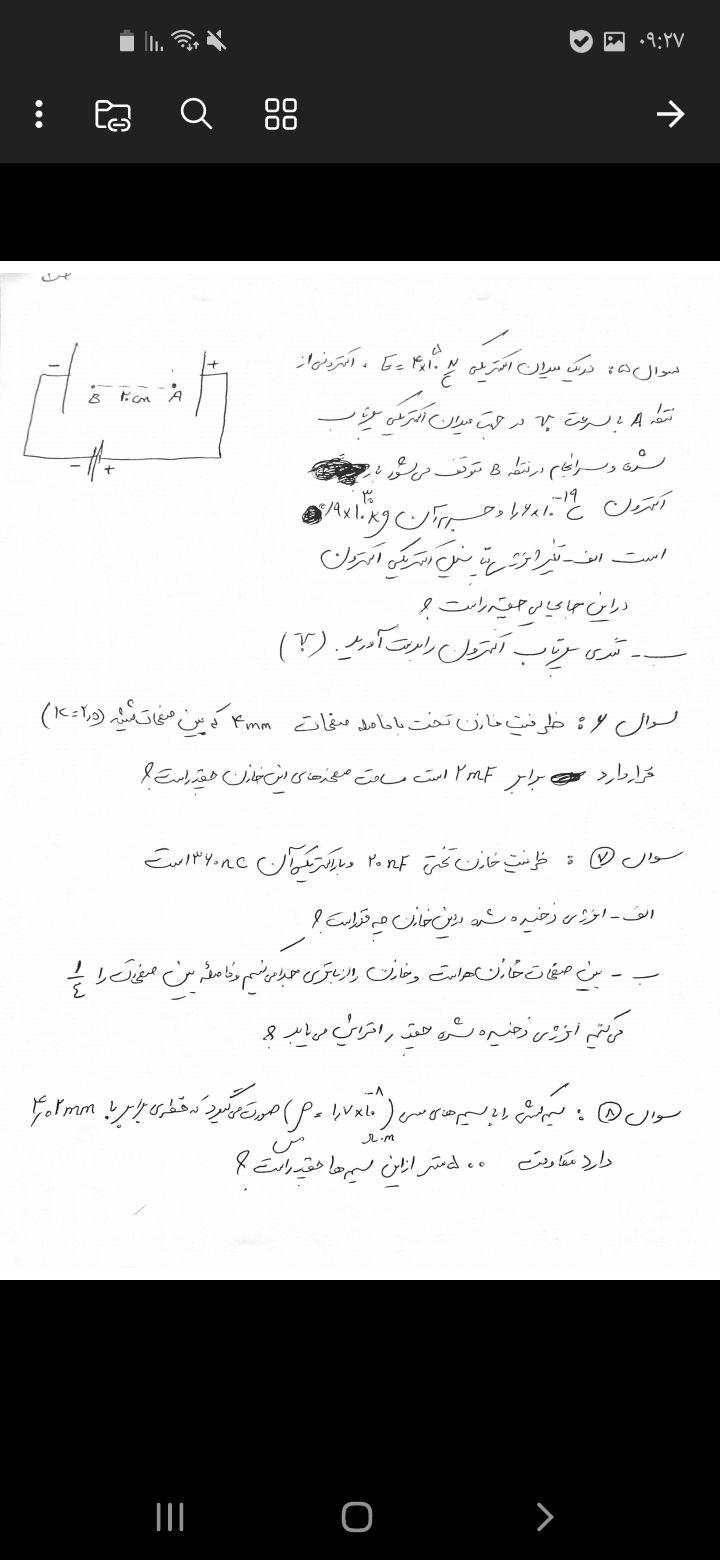 ۰۹:۲۷
سوال ۵: در یک میدان الکتریکی E = ۴×۱۰^۵ N/C ، الکترونی از
نقطه A با سرعت V₀ در جهت میدان الکتریکی پرتاب
شده و سرانجام در نقطه B متوقف می‌شود بار
الکترون ۱,۶×۱۰^-۱۹ C و جرم آن kg
است الف - تغییر انرژی پتانسیل الکتریکی الکترون
در این جابجایی چقدر است ؟
ب - تندی پرتاب الکترون را بدست آورید. (V₀)
- +
B cm A
- +
سوال ۶: ظرفیت خازن تخت با فاصله صفحات ۴mm که بین صفحات شیشه (K=۲,۵)
قرار دارد برابر ۲mF است مساحت صفحه‌های این خازن چقدر است ؟
سوال ۷: ظرفیت خازن تختی ۲۰nF و بار الکتریکی آن ۳۶۰nC است
الف - انرژی ذخیره شده در این خازن چه قدر است ؟
ب - بین صفحات خازن هواست و خازن را از باتری جدا می‌کنیم و فاصله بین صفحات را ۱/۴
می‌کنیم انرژی ذخیره شده چقدر افزایش می‌یابد ؟
سوال ۸: سیم کشی با سیم‌های مسی (ρ = ۱,۷×۱۰^-۸ Ω.m) صورت می‌گیرد که قطری برابر با mm
دارد مقاومت ۵۰۰ متر از این سیم‌ها چقدر است ؟